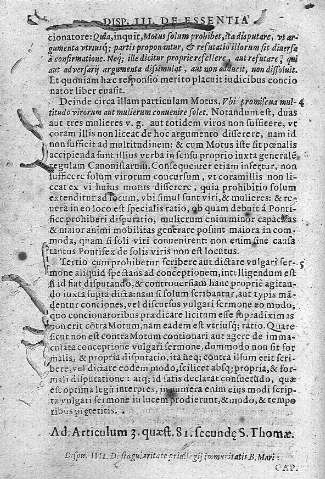 DISP. III. DE ESSENTIA
cionatore: Quia, inquit, Motus solum prohibet, ista disputare, vt ar-
gumenta vtriusq; partis proponantur, & refutatio illorum sit diuersa
à confirmatione. Neq; ille dicitur proprie refellere, aut refutare, qui
aut aduersarij argumenta dissimulat, aut non adducit, non dissoluit.
Et quoniam hæc responsio merito placuit iudicibus concio
nator liber euasit.
Deinde circa illam particulam Motus. Vbi promiscua mul- 4
titudo virorum aut mulierum conuenire solet. Notandum est, duas
aut tres mulieres v. g. aut totidem viros non sufficere, vt
coram illis non liceat de hoc argumento differere, nam id
non sufficit ad multitudinem: & cum Motus iste sit pœnalis
accipienda sunt illius verba in sensu proprio iuxta generalē
regulam Canonistarum. Consequenter etiam infertur, non
sufficere solum virorum concursum, vt coram illis non
liceat ex vi huius motus differere, quia prohibitio solum
extenditur ad locum, vbi simul sunt viri, & mulieres: & re-
uera in eo loco est specialis ratio, ob quam debuit à Ponti-
fice prohiberi disputatio, mulierum enim minor capacitas
& maior animi mobilitas generare possunt maiora incom-
moda, quam si soli viri conuenirent: non enim sine causa
tantus Pontifex de solis viris non est locutus.
Tertio cum prohibetur scribere aut dictare vulgari ser- 5
mone aliquid spectans ad conceptionem, intelligendum est
si id fiat disputando, & controuersiam hanc proprie agitan-
do iuxta supra dicta: nam si solum scribantur, aut typis mā
dentur conciones, vel discursus vulgari sermone eo modo,
quo concionatoribus prædicare licitum esse supra diximus
non erit contra Motum, nam eadem est vtriusq; ratio. Quare
sicut non est contra Motum concionari aut agere de imma-
culata conceptione vulgari sermone, dummodo non sit for
malis, & propria disputatio, ita neq; contra illum erit scribe
re, vel dictare eodem modo, scilicet absq; propria, & for-
mali disputatione: atq; id satis declarat consuetudo, quæ
est optima legis interpres, in numera enim eiusmodi scrip-
ta vulgari sermone in lucem prodierunt, & modo, & tempo
ribus
Ad Articulum 3. quæst. 81. secundę S. Thomæ.
CAP.